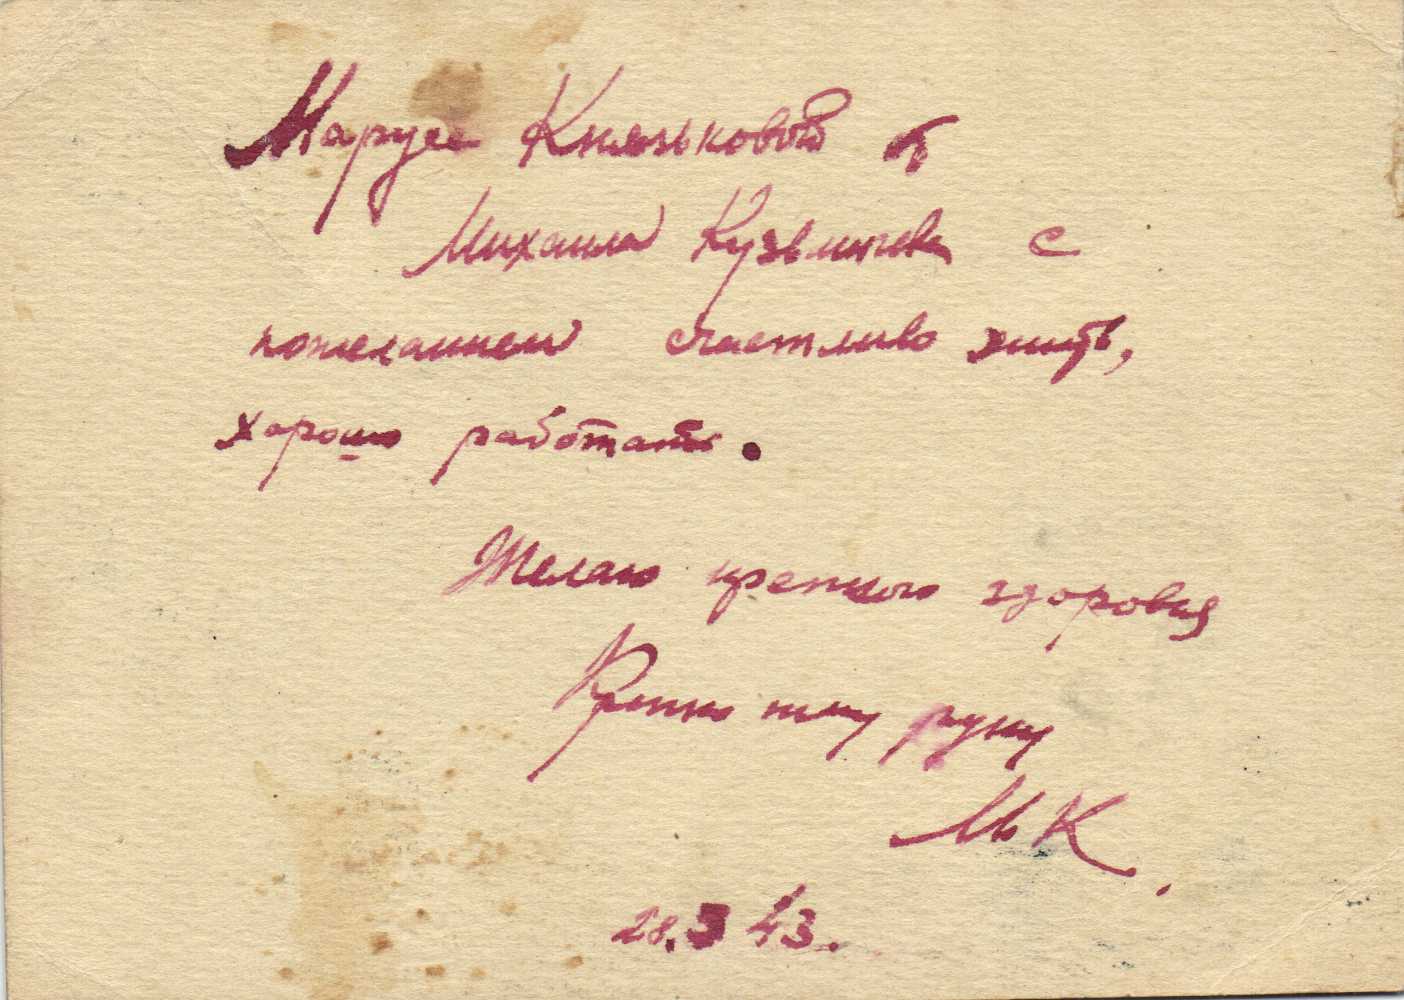 Марусе Князьковой от
Михаила Кузьмичева с
пожеланием счастливо жить,
хорошо работать.
Желаю крепкого здоровья
Крепко жму руку
МК.
28.3 43.